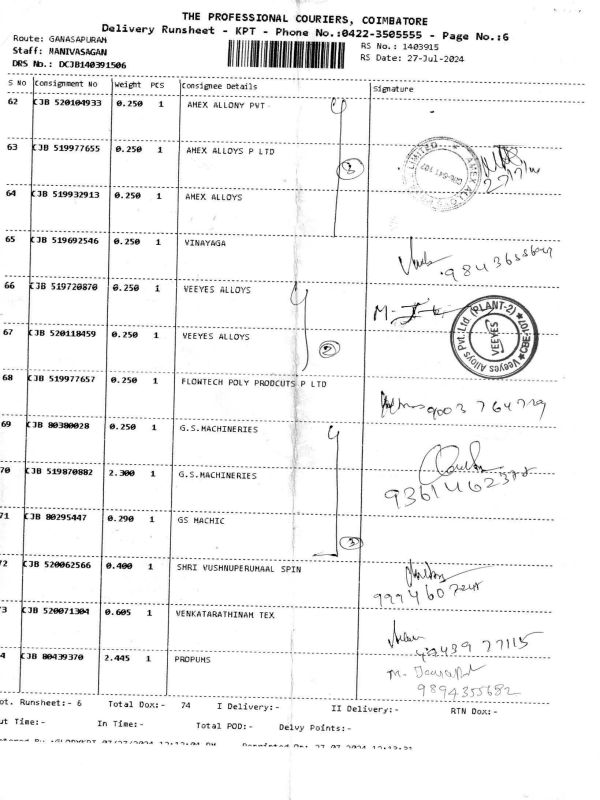 THE PROFESSIONAL COURIERS, COIMBATORE
Delivery Runsheet - KPT - Phone No.:0422-3505555 - Page No.:6
Route: GANASAPURAM
RS No.: 1403915
Staff: MANIVASAGAN
RS Date: 27-Jul-2024
DRS No.: DCJB140391506
S No Consignment No Weight PCS Consignee Details Signature
62 CJB 520104933 0.250 1 AMEX ALLONY PVT
63 CJB 519977655 0.250 1 AMEX ALLOYS P LTD
3
27/7/24
64 CJB 519932913 0.250 1 AMEX ALLOYS
65 CJB 519692546 0.250 1 VINAYAGA
66 CJB 519720870 0.250 1 VEEYES ALLOYS
Veeyes Alloys Pvt. Ltd (PLANT-2) ★ CBE-107 ★
VEEYES
67 CJB 520118459 0.250 1 VEEYES ALLOYS
2
68 CJB 519977657 0.250 1 FLOWTECH POLY PRODCUTS P LTD
9003 764729
69 CJB 80380028 0.250 1 G.S.MACHINERIES
70 CJB 519870882 2.300 1 G.S.MACHINERIES
71 CJB 80295447 0.290 1 GS MACHIC
3
72 CJB 520062566 0.400 1 SHRI VUSHNUPERUMAAL SPIN
73 CJB 520071304 0.605 1 VENKATARATHINAM TEX
74 CJB 80439370 2.445 1 PROPUMS
9894355682
ot. Runsheet:- 6 Total Dox:- 74 I Delivery:- II Delivery:- RTN Dox:-
ut Time:- In Time:- Total POD:- Delvy Points:-